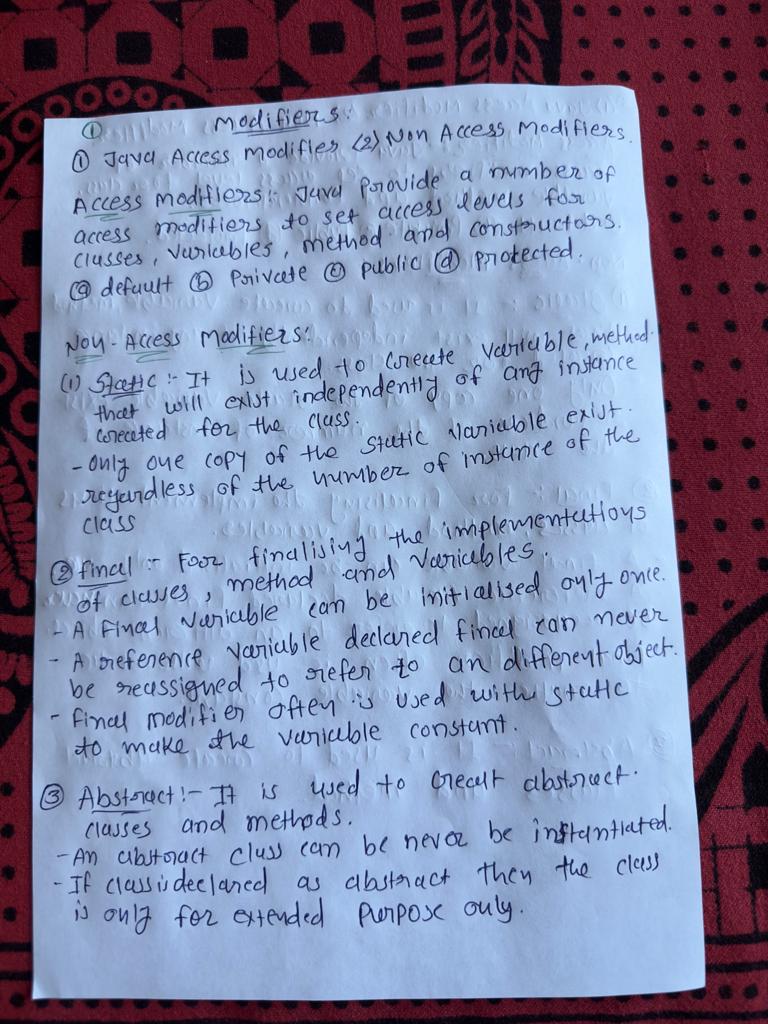 ①
Modifiers:
① Java Access Modifier (2) Non Access Modifiers.
Access Modifiers:- Java Provide a number of
access modifiers to set access levels for
classes, variables, method and constructors.
ⓐ default ⓑ Private ⓒ public ⓓ protected.
Non-Access Modifiers:
(1) Static :- It is used to create variable, method
that will exist independently of any instance
created for the class.
- Only one copy of the static variable exist.
regardless of the number of instance of the
class
② final :- For finalising the implementations
of classes, method and variables.
- A Final variable can be initialised only once.
- A reference variable declared final can never
be reassigned to refer to an different object.
- Final modifier often is used with static
to make the variable constant.
③ Abstract :- It is used to create abstract.
classes and methods.
- An abstract class can be never be instantiated.
- If class is declared as abstract then the class
is only for extended purpose only.